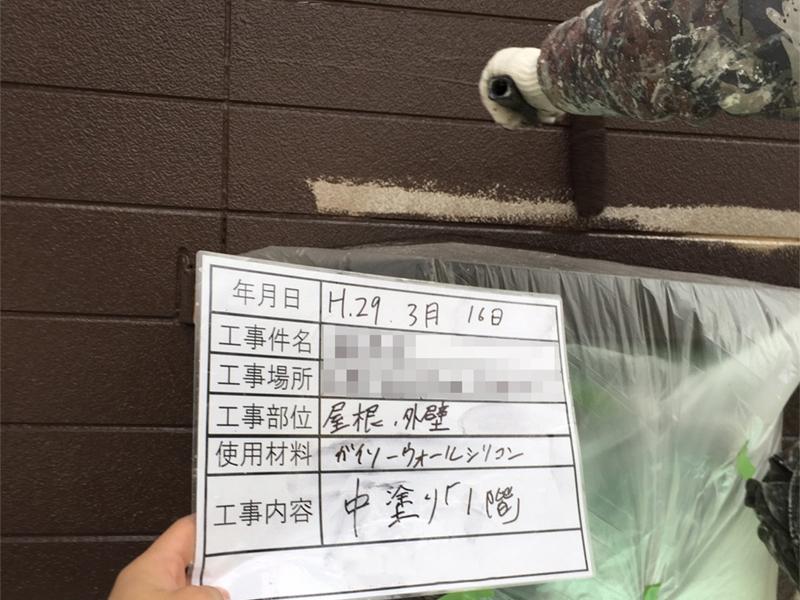 年月日 H.29. 3月 16日
工事件名
工事場所
工事部位 屋根、外壁
使用材料 ガイソーウォールシリコン
工事内容 中塗り「1階」